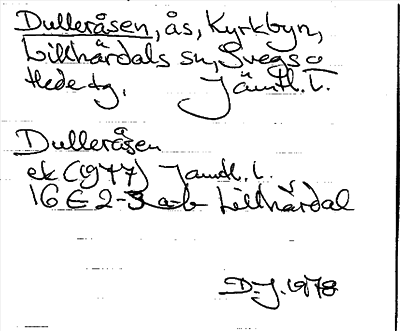 Dulleråsen, ås, Kyrkbyn,
Lillhärdals sn, Svegs o
Hede tg, Jämtl. l.
Dulleråsen
ek (1977) Jämtl. l.
16 E 2-3 a-b Lillhärdal
D.J. 1978